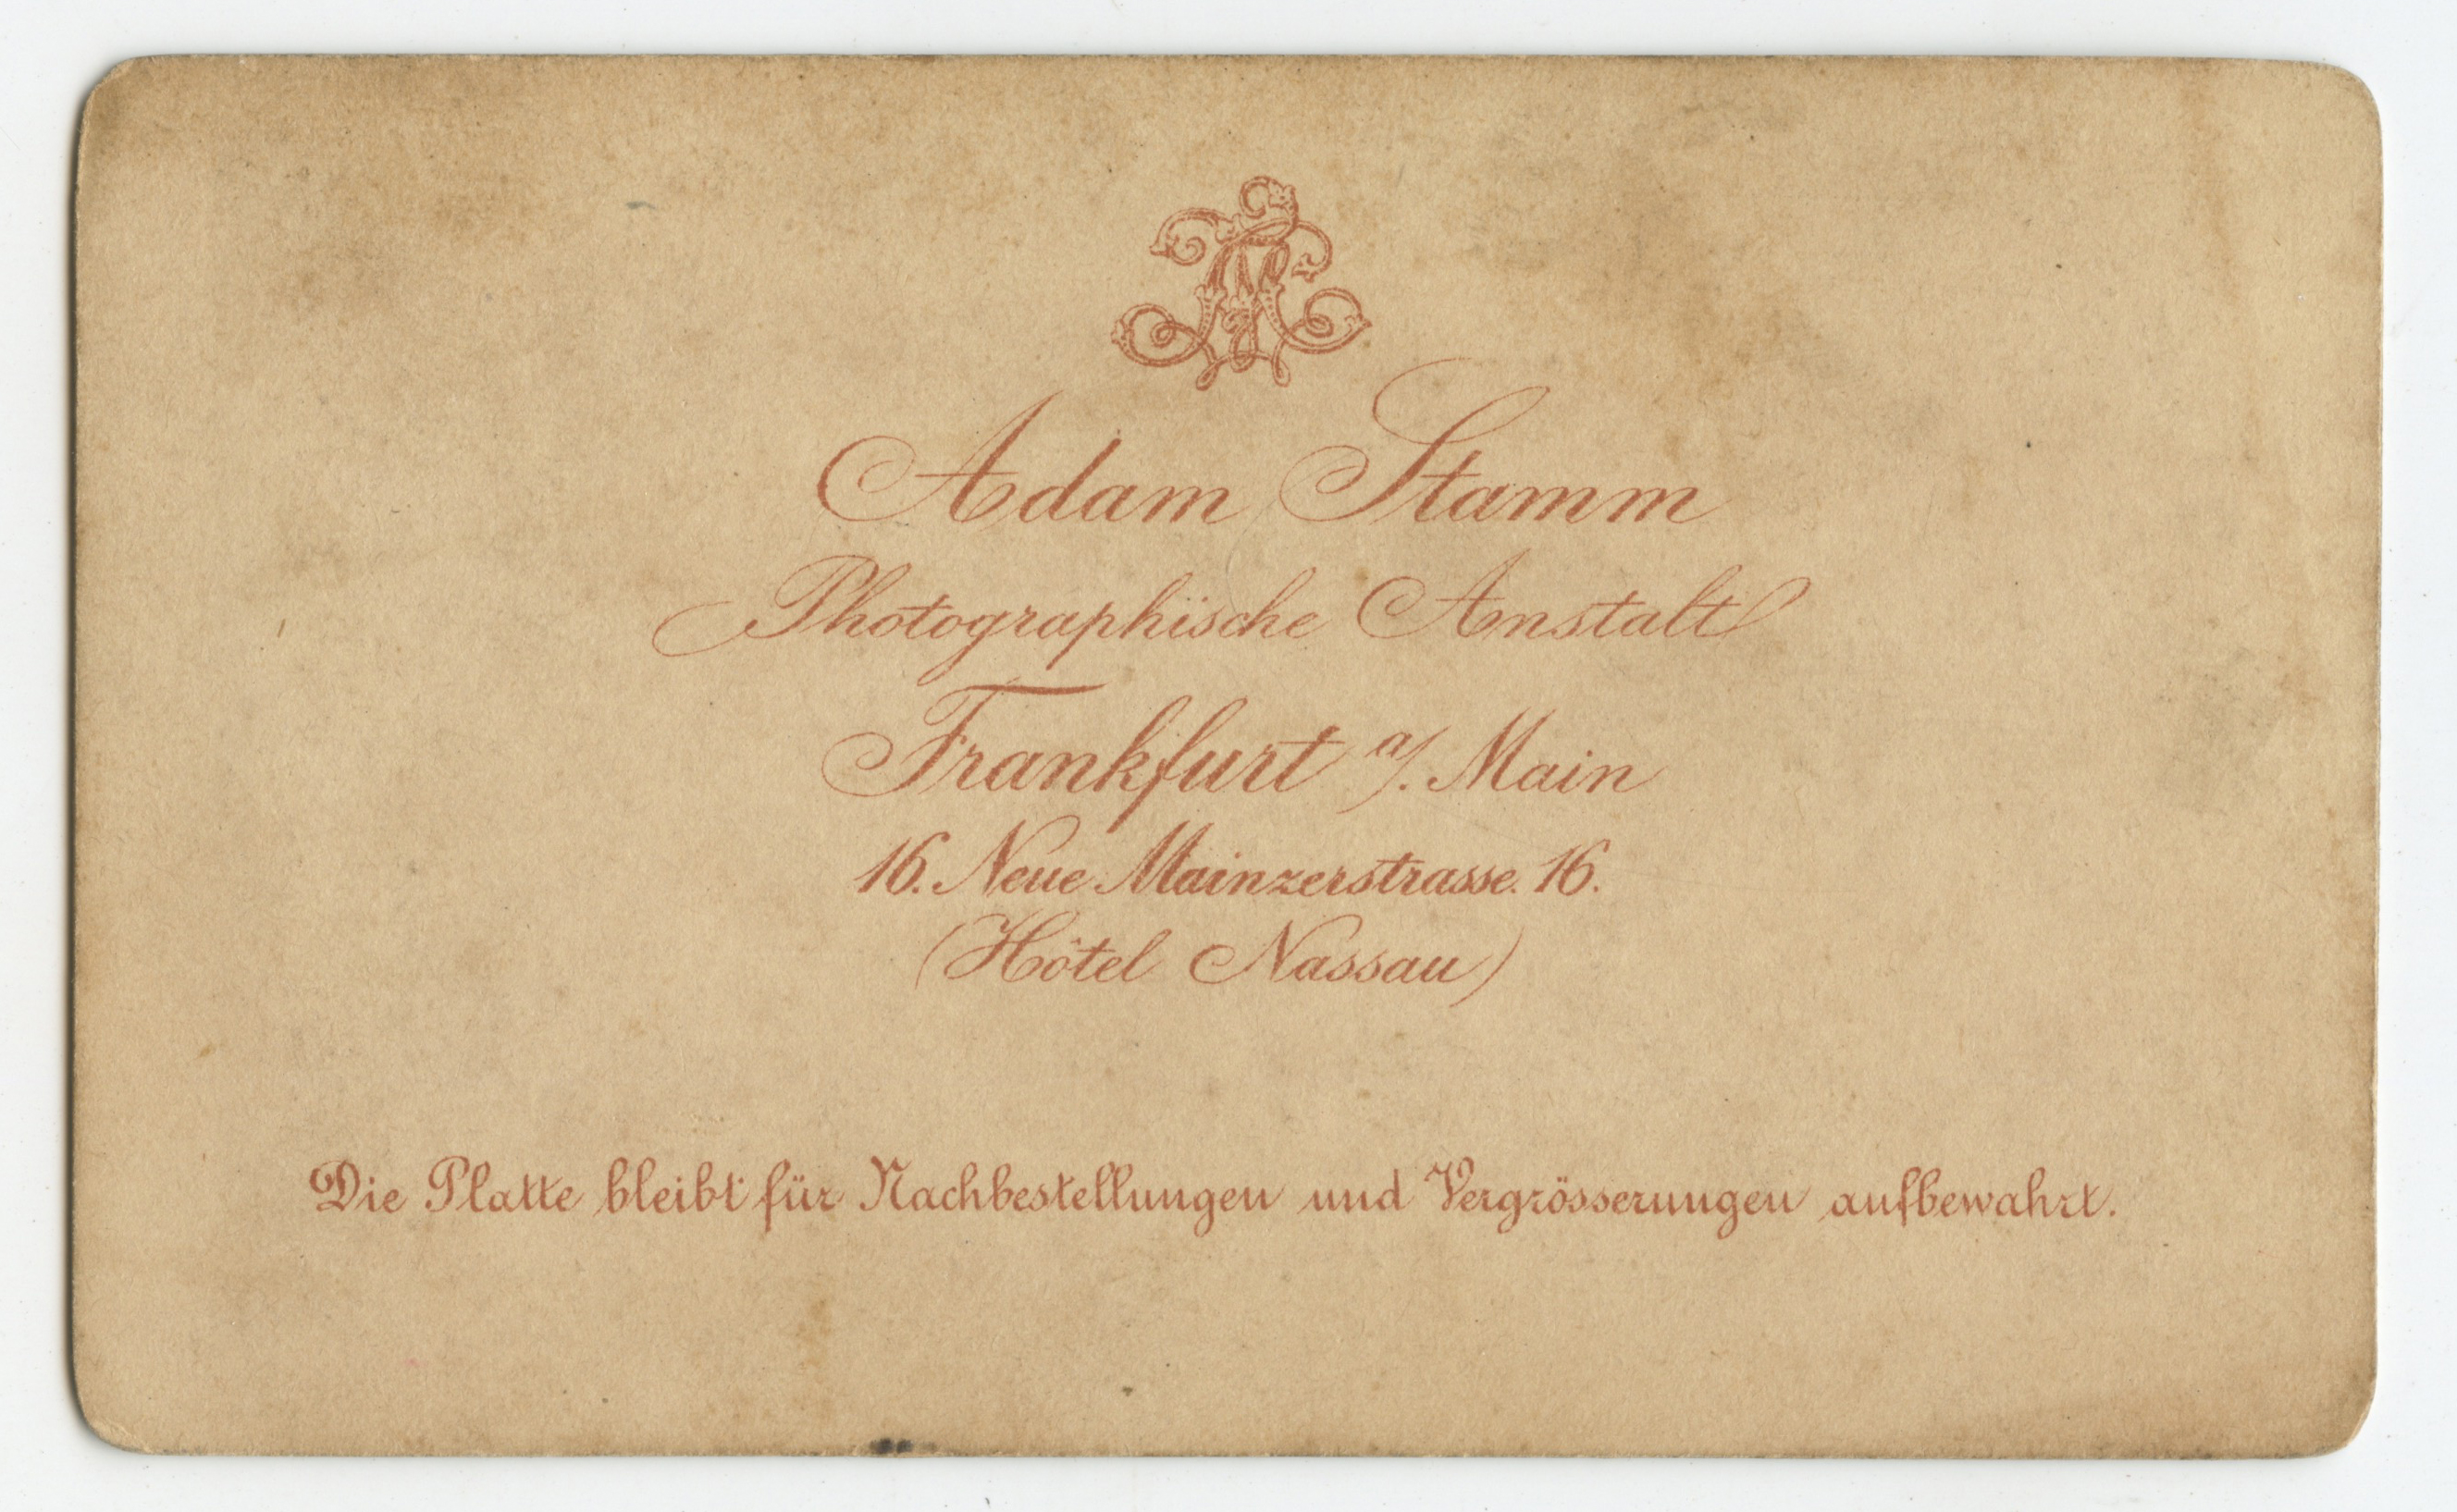 Adam Stamm
Photographische Anstalt
Frankfurt a/. Main
16. Neue Mainzerstrasse. 16.
(Hôtel Nassau)
Die Platte bleibt für Nachbestellungen und Vergrösserungen aufbewahrt.